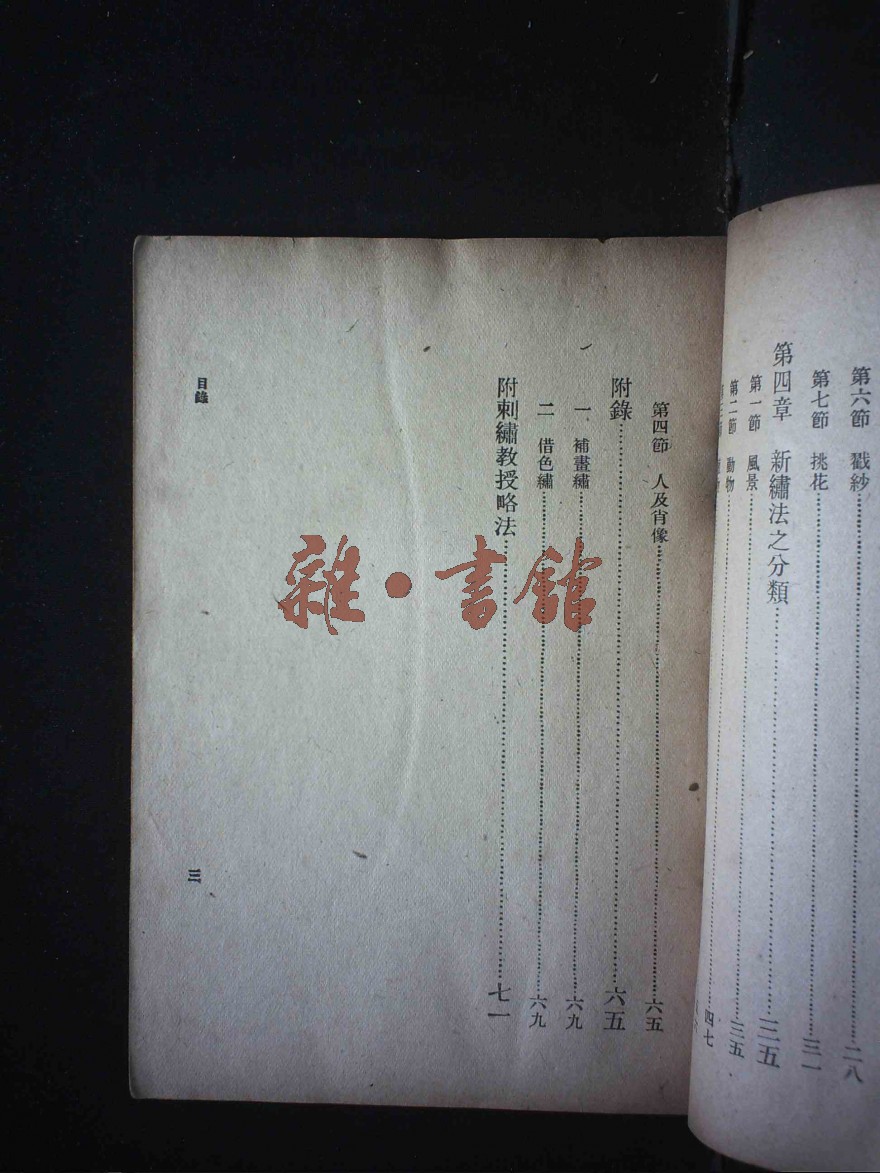 第六節 戳紗……二八
第七節 挑花……三一
第四章 新繡法之分類……三五
第一節 風景……三五
第二節 動物……四七
第四節 人及肖像……六五
附錄……六五
一 補畫繡……六九
二 借色繡……六九
附刺繡教授略法……七一
目錄
三
雜·書館